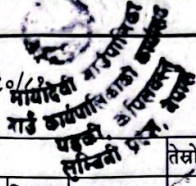 मायादेवी गाउँपालिका
गाउँ कार्यपालिकाको कार्यालय
पडकी, कपिलवस्तु
लुम्बिनी प्रदेश, नेपाल
तेस्रो